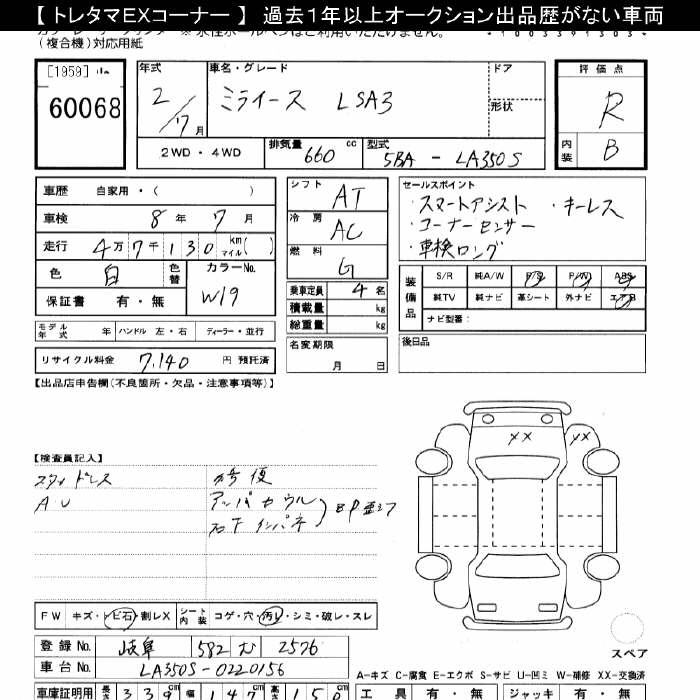 【 トレタマEXコーナー 】 過去1年以上オークション出品歴がない車両
(複合機)対応用紙
[1959]
60068
年式
2/7月
車名・グレード
ミライース LSA3
ドア
形状
評価点
R
内装
B
2WD・4WD
排気量
660 cc
型式
5BA - LA350S
車歴 自家用・( )
車検 8年7月
走行 4万7千130 km マイル( )
色 白 色替
カラーNo.
W19
保証書 有・無
モデル年式 年 ハンドル 左・右 ディーラー・並行
リサイクル料金 7,140 円 預託済
シフト
AT
冷房
AC
燃料
G
乗車定員 4名
積載量 kg
総重量 kg
名変期限
月 日
セールスポイント
・スマートアシスト ・キーレス
・コーナーセンサー
・車検ロング
装備品
S/R 純A/W P/S P/W ABS
純TV 純ナビ 革シート 外ナビ エアB
ナビ型番:
後日品
【出品店申告欄(不良箇所・欠品・注意事項等)】
【検査員記入】
スタッドレス
AU
アッパカウル
右下インパネ
FW キズ・トビ石・割レX
シート内装 コゲ・穴・汚レ・シミ・破レ・スレ
登録No. 岐阜 582 む 2576
車台No. LA350S-0220156
車庫証明用 長さ 339 cm 幅 147 cm 高さ 150 cm
XX
XX
スペア
A-キズ C-腐食 E-エクボ S-サビ U-凹ミ W-補修 XX-交換済
工具 有・無 ジャッキ 有・無